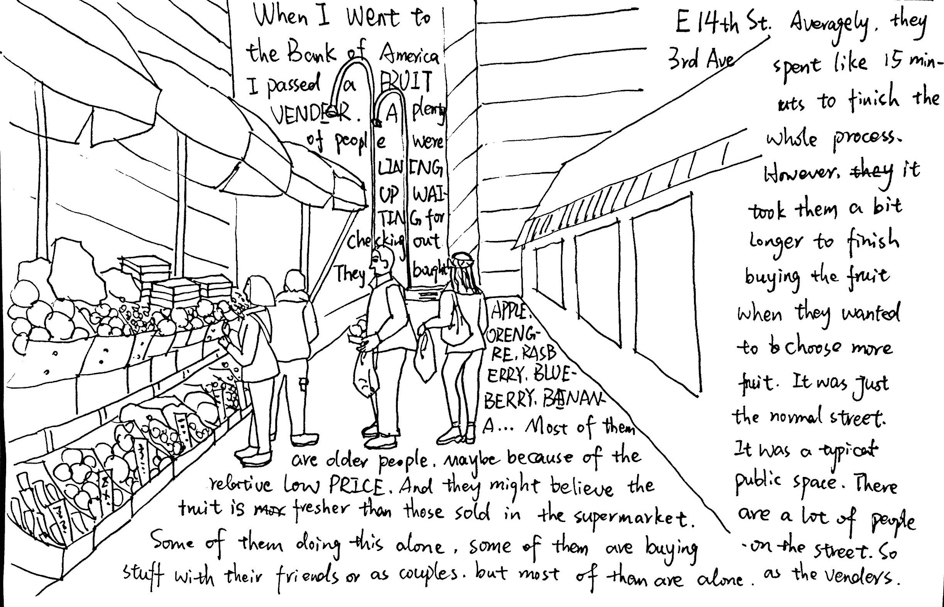 When I went to
the Bank of America
I passed a FRUIT
VENDER. A plenty
of people were
LINING
UP WAI-
TING for
checking out
They baught
APPLE.
ORENG-
RE, RASB
ERRY. BLUE-
BERRY. BANAN-
A... Most of them
are older people. maybe because of the
relative LOW PRICE. And they might believe the
fruit is fresher than those sold in the supermarket.
Some of them doing this alone, some of them are buying
stuff with their friends or as couples. but most of them are alone.
E 14th St.
3rd Ave
Averagely, they
spent like 15 min-
uts to finish the
whole process.
However, they it
took them a bit
longer to finish
buying the fruit
when they wanted
to choose more
fuit. It was just
the normal street.
It was a typical
public space. There
are a lot of people
on the street. So
as the venders.